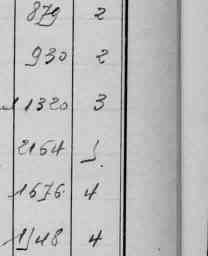 879 2
930 2
1320 3
2164
1676 4
1718 4